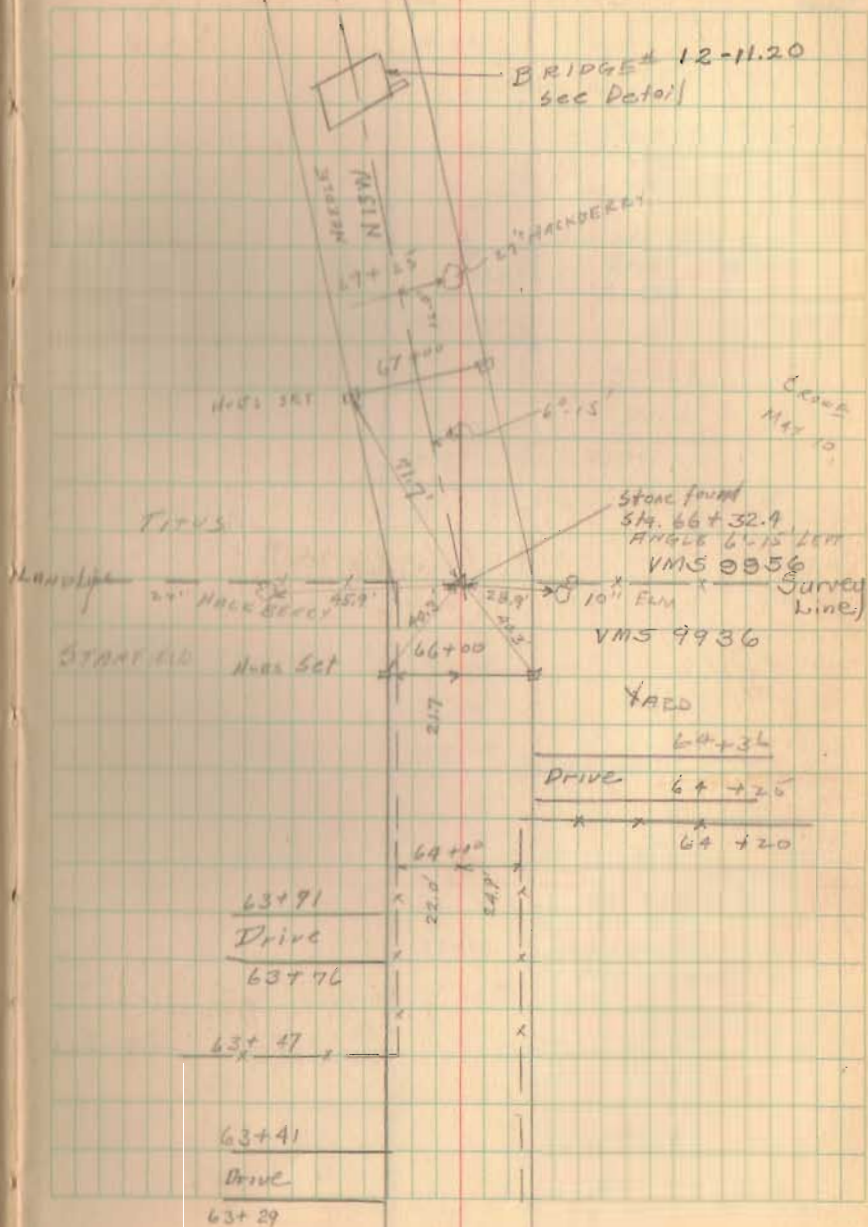 BRIDGE# 12-11.20
See Detail
N15W
NEEDLE
27" HACKBERRY
67+00
HUBS SET
6°-15'
71.7'
Stone found
Sta. 66+32.4
ANGLE 6°15' LEFT
TITUS
VMS 9956
Landline
24" HACKBERRY
45.9'
28.9'
10" ELM
Survey
Line
VMS 9936
Hubs Set
66+00
21.7
YARD
64+36
Drive
64+25
64+20
64+00
22.0'
24.9'
63+91
Drive
63+76
63+47
63+41
Drive
63+29